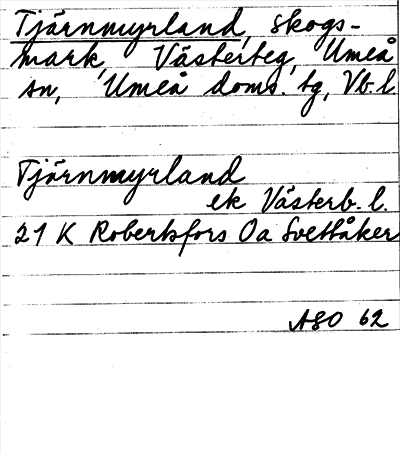 Tjärnmyrland, skogs-
mark, Västerteg, Umeå
sn, Umeå doms. tg, Vb. l
Tjärnmyrland
ek Västerb. l.
21 K Robertsfors Oa Svettåker
ASO 62